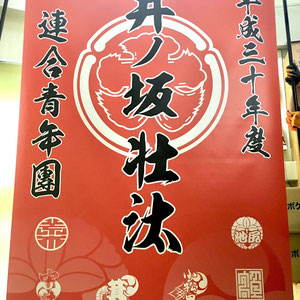 平成三十年度
井ノ坂壮汰
連合青年團